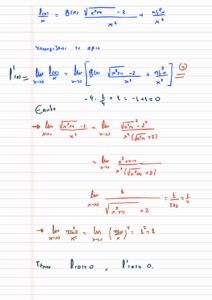 f(x)/x = g(x) · (√(x²+4) - 2)/x² + ημ²x/x²
f'(0) = lim x→0 f(x)/x = lim x→0 [g(x) · (√(x²+4) - 2)/x² + ημ²x/x²]
-4 · 1/4 + 1 = -1 + 1 = 0
→ lim x→0 (√(x²+4) - 2)/x² = lim x→0 (√(x²+4)² - 2²)/(x²(√(x²+4) + 2))
= lim x→0 (x²+4-4)/(x²(√(x²+4) + 2))
lim x→0 1/(√(x²+4) + 2) = 1/(2+2) = 1/4
→ lim x→0 ημ²x/x² = lim x→0 (ημx/x)² = 1² = 1
f(0)=0, f'(0)=0.